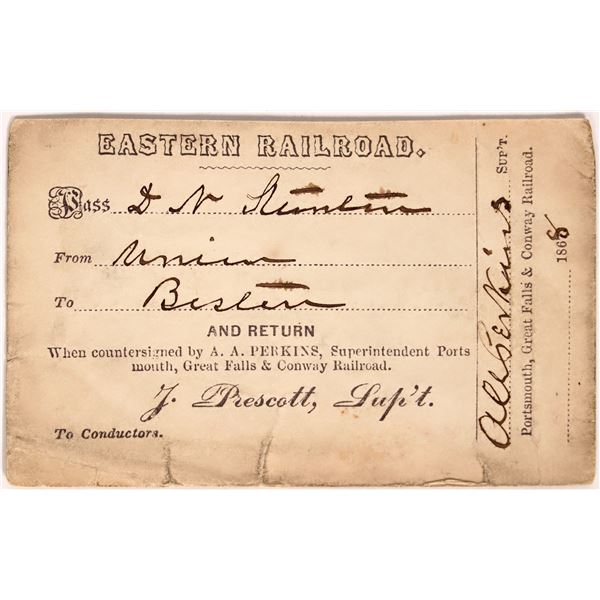 EASTERN RAILROAD.
Pass D N
From Union
To Boston
AND RETURN
When countersigned by A. A. PERKINS, Superintendent Ports
mouth, Great Falls & Conway Railroad.
J. Prescott, Sup't.
To Conductors.
A A Perkins SUP'T.
Portsmouth, Great Falls & Conway Railroad.
1868